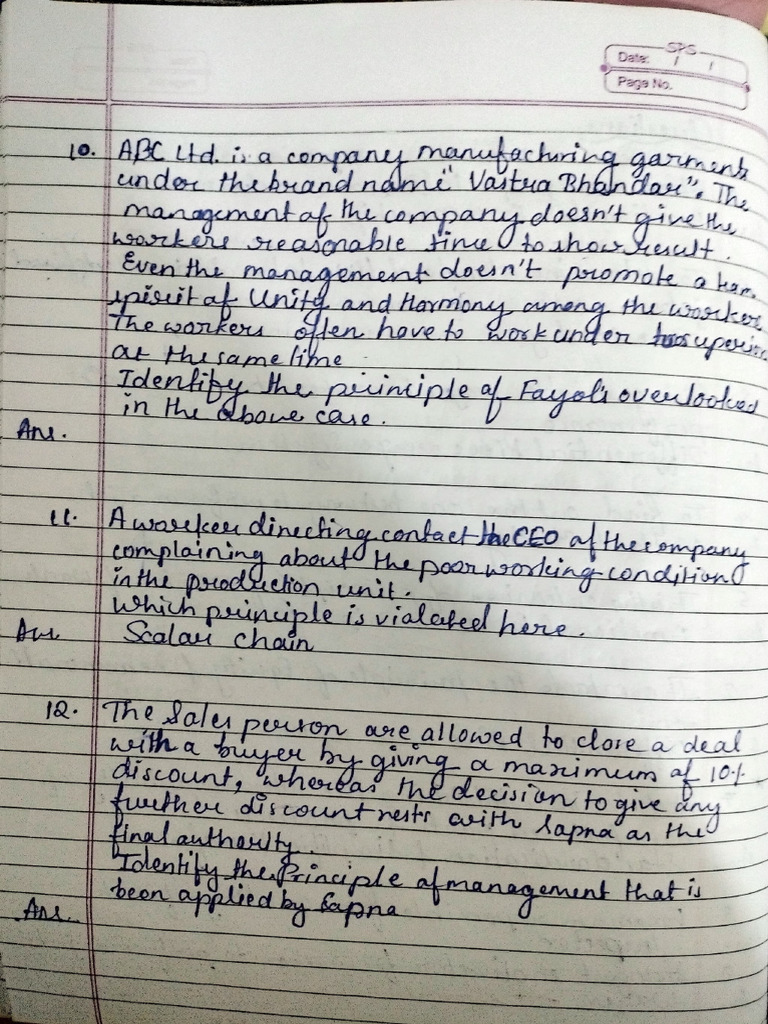 SPS
Date: / /
Page No.
10. ABC Ltd. is a company manufacturing garments
under the brand name "Vastra Bhandar". The
management of the company doesn't give the
workers reasonable time to show result.
Even the management doesn't promote a
spirit of Unity and Harmony among the worker
The workers often have to work under
at the same time
Identify the principle of Fayol's overlooked
in the above case.
Ans.
11. A worker directing contact the CEO of the company
complaining about the poor working condition
in the production unit.
Which principle is violated here.
Ans Scalar chain
12. The Sales person are allowed to close a deal
with a buyer by giving a maximum of 10%
discount, whereas the decision to give any
further discount rests with Sapna as the
final authority.
Identify the Principle of management that is
been applied by Sapna
Ans.